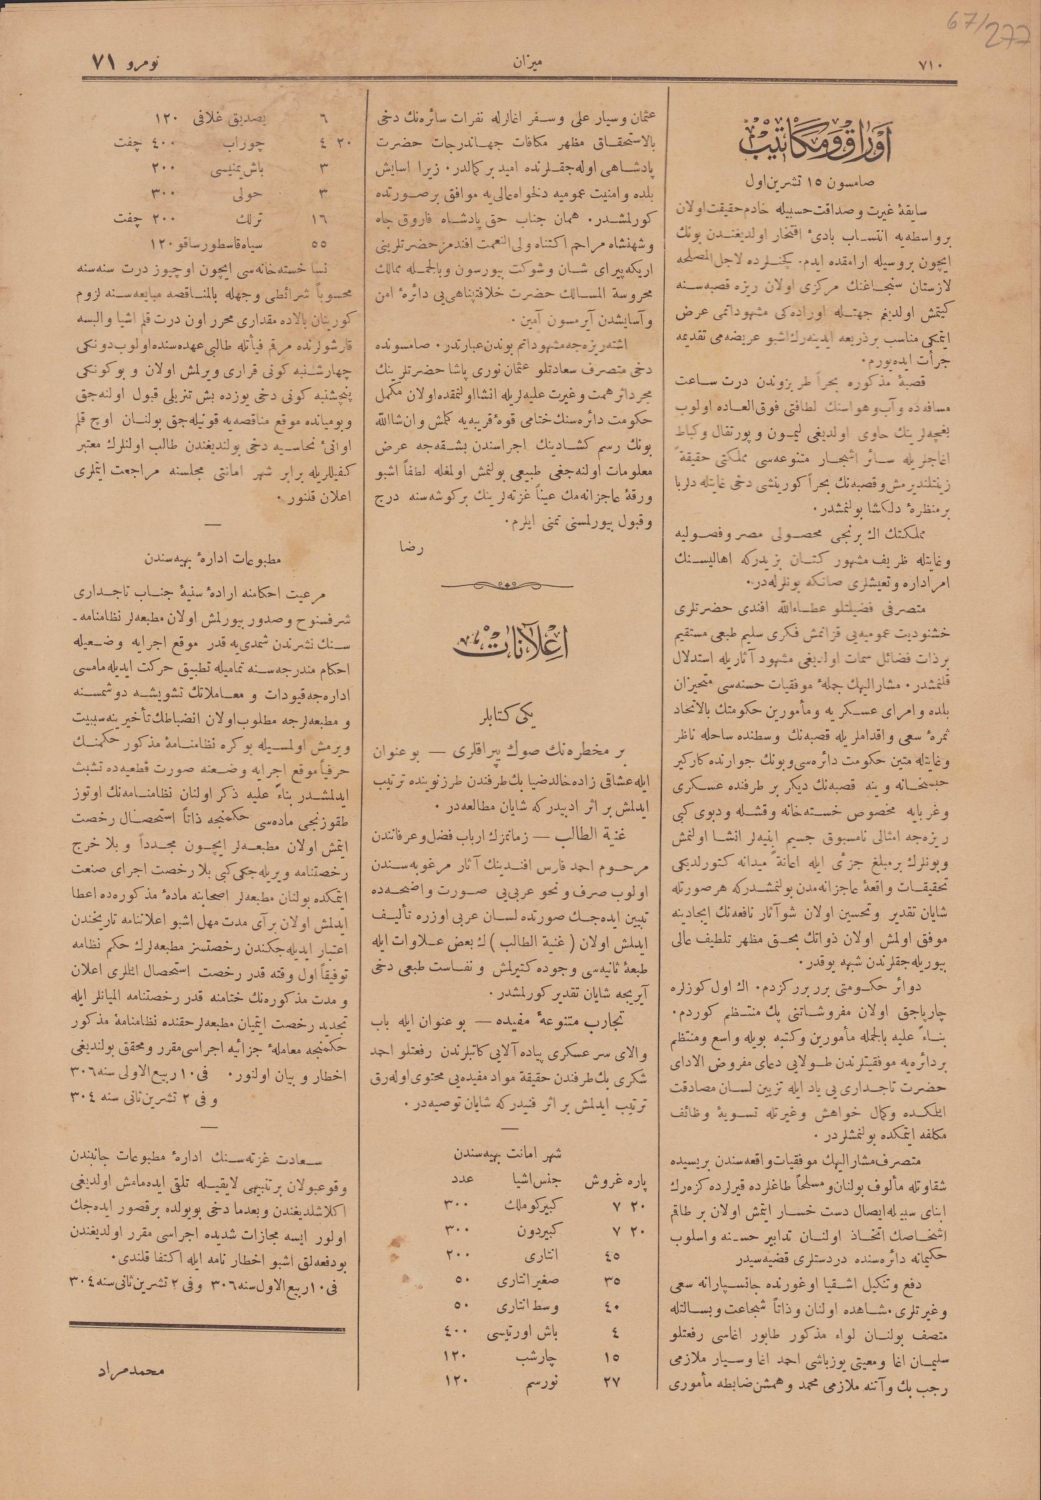 67/277
٧١٠
ميزان
نومرو ٧١
اوراق و مكاتيب
صامسون ١٥ تشرين اول
سابقهٔ غيرت و صداقت حسبيله خادم حقيقت اولان
بر واسطه‌يه انتساب بادئ افتخار اولديغندن بونك
ايچون بر وسيله ارامقده ايدم. كچنلرده لاجل المصلحه
لازستان سنجاغنك مركزى اولان ريزه قصبه‌سنه
كيتمش اولديغم جهتله اوراده‌كى مشهوداتمى عرض
ايتمكى مناسب بر ذريعه ايدينه‌رك اشبو عريضه‌مى تقديمه
جرأت ايده‌يورم.
قصبهٔ مذكوره بحراً طربزوندن درت ساعت
مسافه‌ده و آب و هواسنك لطافتى فوق العاده اولوب
بغچه‌لرينك حاوى اولديغى ليمون و پورتقال و كباط
اغاجلريله سائر اشجار متنوعه‌سى مملكتى حقيقةً
زينتلنديرمش و قصبه‌نك بحراً كورينشى دخى غايتله دلربا
بر منظرهٔ دلكشا بولنمشدر.
مملكتك اك برنجى محصولى مصر و فصوليه
و غايتله ظريف مشهور كتان بزيدركه اهاليسنك
امر اداره و تعيشلرى صانكه بونلرله‌در.
متصرفى فضيلتلو عطاءالله افندى حضرتلرى
خشنوديت عموميه‌يى قزانمش فكرى سليم طبعى مستقيم
بر ذات فضائل سمات اولديغى مشهود آثاريله استدلال
قلنمشدر. مشاراليهك جملهٔ موفقيات حسنه‌سى متحيزان
بلده و امراى عسكريه و مأمورين حكومتك بالاتحاد
ثمرهٔ سعى و اقداملريله قصبه‌نك وسطنده ساحله ناظر
و غايتله متين حكومت دائره‌سى و بونك جوارنده كاركير
حبسخانه و ينه قصبه‌نك ديكر بر طرفنده عسكرى
و غربايه مخصوص خسته‌خانه و قشله و دبوى كبى
ريزه‌جه امثالى نامسبوق جسيم ابنيه‌لر انشا اولنمش
و بونلرك بر مبلغ جزئى ايله اعانةً ميدانه كتورلديكى
تحقيقات واقعهٔ عاجزانه‌مدن بولنمشدركه هر صورتله
شايان تقدير و تحسين اولان شو آثار نافعه‌نك ايجادينه
موفق اولمش اولان ذواتك بحق مظهر تلطيف عالى
بيوريله‌جقلرندن شبهه يوقدر.
دوائر حكومتى برر برر كزدم. اك اول كوزلره
چارپاجق اولان مفروشاتنى پك منتظم كوردم.
بناءً عليه بالجمله مأمورين و كتبه بويله واسع و منتظم
بر دائره‌يه موفقيتلرندن طولايى دعاى مفروض الاداى
حضرت تاجدارى‌يى ياد ايله تزيين لسان مصادقت
ايتمكده و كمال خواهش و غيرتله تسويهٔ وظائف
مكلفه ايتمكده بولنمشلردر.
متصرف مشاراليهك موفقيات واقعه‌سندن بريسيده
شقاوتله مألوف بولنان و مسلحاً طاغلرده قيرلرده كزه‌رك
ابناى سبيله ايصال دست خسار ايتمش اولان بر طاقم
اشخاصك اتخاذ اولنان تدابير حسنه و اسلوب
حكيمانه دائره‌سنده دردستلرى قضيه‌سيدر
دفع و تنكيل اشقيا اوغورنده جانسپارانه سعى
و غيرتلرى مشاهده اولنان و ذاتاً شجاعت و بسالتله
متصف بولنان لواء مذكور طابور اغاسى رفعتلو
سليمان اغا و معيتى يوزباشى احمد اغا و سيار ملازمى
رجب بك و آتنه ملازمى محمد و همشن ضابطه مأمورى
عثمان و سيار على و سفر اغالرله نفرات سائره‌نك دخى
بالاستحقاق مظهر مكافات جهاندرجات حضرت
پادشاهى اوله‌جقلرنده اميد بر كمالدر. زيرا اسايش
بلده و امنيت عموميه دلخواه عالى‌يه موافق بر صورتده
كورلمشدر. همان جناب حق پادشاه فاروق جاه
و شهنشاه مراحم اكتناه ولى النعمت افندمز حضرتلرينى
اريكه‌پيراى شان و شوكت بيورسون و بالجمله ممالك
محروسة المسالك حضرت خلافتپناهى‌يى دائرهٔ امن
و آسايشدن آيرمسون آمين.
اشته ريزه‌جه مشهوداتم بوندن عبارتدر. صامسونده
دخى متصرف سعادتلو عثمان نورى پاشا حضرتلرينك
مجرد اثر همت و غيرت عليه‌لريله انشا اولنمقده اولان مكمل
حكومت دائره‌سنك ختامى قوهٔ قريبه‌يه كلمش و ان شاالله
بونك رسم كشادينك اجراسندن بشقه‌جه عرض
معلومات اولنه‌جغى طبيعى بولنمش اولمغله لطفاً اشبو
ورقهٔ عاجزانه‌مك عيناً غزته‌لرينك بر كوشه‌سنه درج
و قبول بيورلمسنى تمنى ايلرم.
رضا
اعلانات
يكى كتابلر
بر مخطره‌نك صوك يپراقلرى — بو عنوان
ايله عشاقى زاده خالد ضيا بك طرفندن طرز نوينده ترتيب
ايدلمش بر اثر ادبيدركه شايان مطالعه‌در.
غنية الطالب — زمانمزك ارباب فضل و عرفانندن
مرحوم احمد فارس افندينك آثار مرغوبه‌سندن
اولوب صرف و نحو عربى‌يى صورت واضحه‌ده
تبيين ايده‌جك صورتده لسان عربى اوزره تأليف
ايدلمش اولان (غنية الطالب) ك بعض علاوات ايله
طبعهٔ ثانيه‌سى وجوده كتيرلمش و نفاست طبعى دخى
آيريجه شايان تقدير كورلمشدر.
تجارب متنوعهٔ مفيده — بو عنوان ايله باب
والاى سر عسكرى پياده آلايى كاتبلرندن رفعتلو احمد
شكرى بك طرفندن حقيقةً مواد مفيده‌يى محتوى اوله‌رق
ترتيب ايدلمش بر اثر فنيدركه شايان توصيه‌در.
شهر امانت بهيه‌سندن
پاره غروش جنس اشيا عدد
٢٠ ٧ كبيركوملك ٣٠٠
٢٠ ٧ كبيردون ٣٠٠
٤٥ انتارى ٢٠٠
٣٥ صغير انتارى ٥٠
٤٠ وسط انتارى ٥٠
٤ باش اورتيسى ٤٠٠
١٥ چارشب ١٢٠
٢٧ نورسم ١٢٠
٦ يصديق غلافى ١٢٠
٢٠ ٤ چوراب ٤٠٠ چفت
٣ باش يمنيسى ٢٠٠
٣ حولى ٣٠٠
١٦ ترلك ٢٠٠ چفت
٥٥ سياه قاسطور ساقو ١٢٠
نسا خسته‌خانه‌سى ايچون اوچيوز درت سنه‌سنه
محسوباً شرائطى وجهله بالمناقصه مبايعه‌سنه لزوم
كورينان بالاده مقدارى محرر اون درت قلم اشيا و البسه
قارشولرنده مرقم فيأتله طالبى عهده‌سنده اولوب دونكى
چهارشنبه كونى قرارى ويرلمش اولان و بوكونكى
پنچشنبه كونى دخى يوزده بش تنزيلى قبول اولنه‌جق
و بوميانده موقع مناقصه‌يه قونيله‌جق بولنان اوچ قلم
اوانئ نحاسيه دخى بولنديغندن طالب اولنلرك معتبر
كفيللريله برابر شهر امانتى مجلسنه مراجعت ايتملرى
اعلان قلنور.
مطبوعات ادارهٔ بهيه‌سندن
مرعيت احكامنه ارادهٔ سنيهٔ جناب تاجدارى
شرفسنوح و صدور بيورلمش اولان مطبعه‌لر نظامنامه‌ـ
سنك نشرندن شمدى‌يه قدر موقع اجرايه وضعيله
احكام مندرجه‌سنه تماميله تطبيق حركت ايديله‌مامسى
اداره‌جه قيودات و معاملاتك تشويشنه دوشمسنه
و مطبعه‌لرجه مطلوب اولان انضباطك تأخيرينه سببيت
ويرمش اولمسيله بوكره نظامنامهٔ مذكور حكمنك
حرفياً موقع اجرايه وضعنه صورت قطعيه‌ده تشبث
ايدلمشدر بناءً عليه ذكر اولنان نظامنامه‌نك اوتوز
طقوزنجى ماده‌سى حكمنجه ذاتاً استحصال رخصت
ايتمش اولان مطبعه‌لر ايچون مجدداً و بلا خرج
رخصتنامه ويريله‌جكى كبى بلا رخصت اجراى صنعت
ايتمكده بولنان مطبعه‌لر اصحابنه مادهٔ مذكوره‌ده اعطا
ايدلمش اولان بر آى مدت مهل اشبو اعلاننامه تاريخندن
اعتبار ايديله‌جكندن رخصتسز مطبعه‌لرك حكم نظامه
توفيقاً اول وقته قدر رخصت استحصال ايتملرى اعلان
و مدت مذكوره‌نك ختامنه قدر رخصتنامه الميانلر ايله
تجديد رخصت ايتميان مطبعه‌لر حقنده نظامنامهٔ مذكور
حكمنجه معاملهٔ جزائيه اجراسى مقرر و محقق بولنديغى
اخطار و بيان اولنور. فى ١٠ ربيع الاولى سنه ٣٠٦
و فى ٢ تشرين ثانى سنه ٣٠٤
سعادت غزته‌سنك ادارهٔ مطبوعات جانبندن
وقوعبولان بر تنبيهى لايقيله تلقى ايده‌مامش اولديغى
اكلاشلديغندن و بعدما دخى بويولده بر قصور ايده‌جك
اولور ايسه مجازات شديده اجراسى مقرر اولديغندن
بو دفعه‌لق اشبو اخطارنامه ايله اكتفا قلندى.
فى ١٠ ربيع الاول سنه ٣٠٦ و فى ٢ تشرين ثانى سنه ٣٠٤
محمد مراد